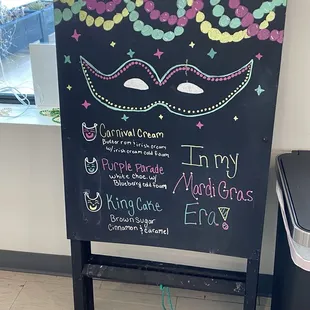 Carnival Cream
Butter rum + irish cream
w/ irish cream cold foam
Purple Parade
white choc w/
Blueberry cold foam
King Cake
Brown Sugar
Cinnamon & caramel
In my
Mardi Gras
Era!